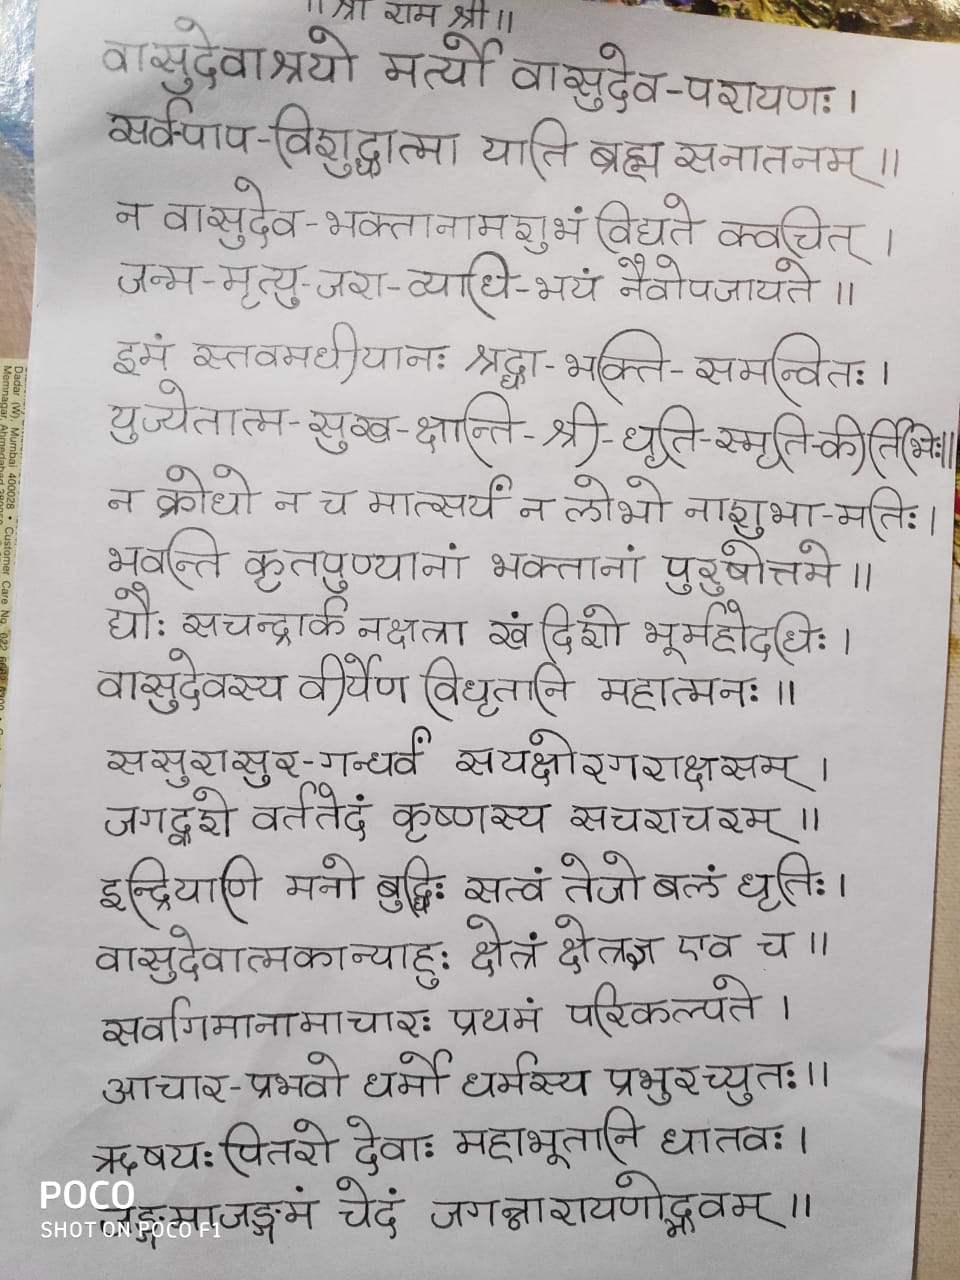 ॥ श्री राम श्री॥
वासुदेवाश्रयो मर्त्यो वासुदेव-परायणः ।
सर्वपाप-विशुद्धात्मा याति ब्रह्म सनातनम् ॥
न वासुदेव-भक्तानामशुभं विद्यते क्वचित् ।
जन्म-मृत्यु-जरा-व्याधि-भयं नैवोपजायते ॥
इमं स्तवमधीयानः श्रद्धा-भक्ति-समन्वितः ।
युज्येतात्म-सुख-क्षान्ति-श्री-धृति-स्मृति-कीर्तिभिः॥
न क्रोधो न च मात्सर्यं न लोभो नाशुभा-मतिः ।
भवन्ति कृतपुण्यानां भक्तानां पुरुषोत्तमे ॥
द्यौः सचन्द्रार्क नक्षत्रा खं दिशो भूर्महोदधिः ।
वासुदेवस्य वीर्येण विधृतानि महात्मनः ॥
ससुरासुर-गन्धर्वं सयक्षोरगराक्षसम् ।
जगद्वशे वर्ततेदं कृष्णस्य सचराचरम् ॥
इन्द्रियाणि मनो बुद्धिः सत्वं तेजो बलं धृतिः ।
वासुदेवात्मकान्याहुः क्षेत्रं क्षेत्रज्ञ एव च ॥
सर्वागमानामाचारः प्रथमं परिकल्पते ।
आचार-प्रभवो धर्मो धर्मस्य प्रभुरच्युतः ॥
ऋषयः पितरो देवाः महाभूतानि धातवः ।
जङ्गमाजङ्गमं चेदं जगन्नारायणोद्भवम् ॥
Dadar (W), Mumbai 400028 • Customer Care No. 022
Memnagar, Ahmedabad
POCO
SHOT ON POCO F1